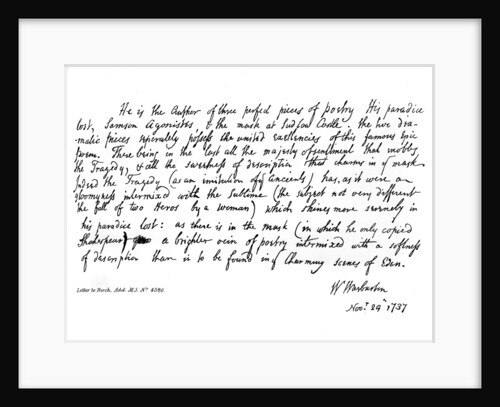 He is the Author of three perfect pieces of poetry His paradice
lost, Samson Agonistes, & the mask at Ludlow Castle. The two dra-
matic pieces separately possess the united excellencies of this famous Epic
poem. There being in the last all the majesty of sentiment that nobles
the Tragedy, & all the sweetness of description that charms in yᵉ mask
Indeed the Tragedy (as an imitation of yᵉ Ancients) has, as it were a
gloomyness intermixed with the Sublime (the subject not very different
the fall of two Heros by a woman) which shines more serenely in
his paradice lost: as there is in the mask (in which he only copied
Shakespear) a brighter vein of poetry intermixed with a softness
of description than is to be found in yᵉ Charming scenes of Eden.
W Warburton
Novʳ 29ᵗʰ 1737
Letter to Birch, Add. M.S. Nº 4320